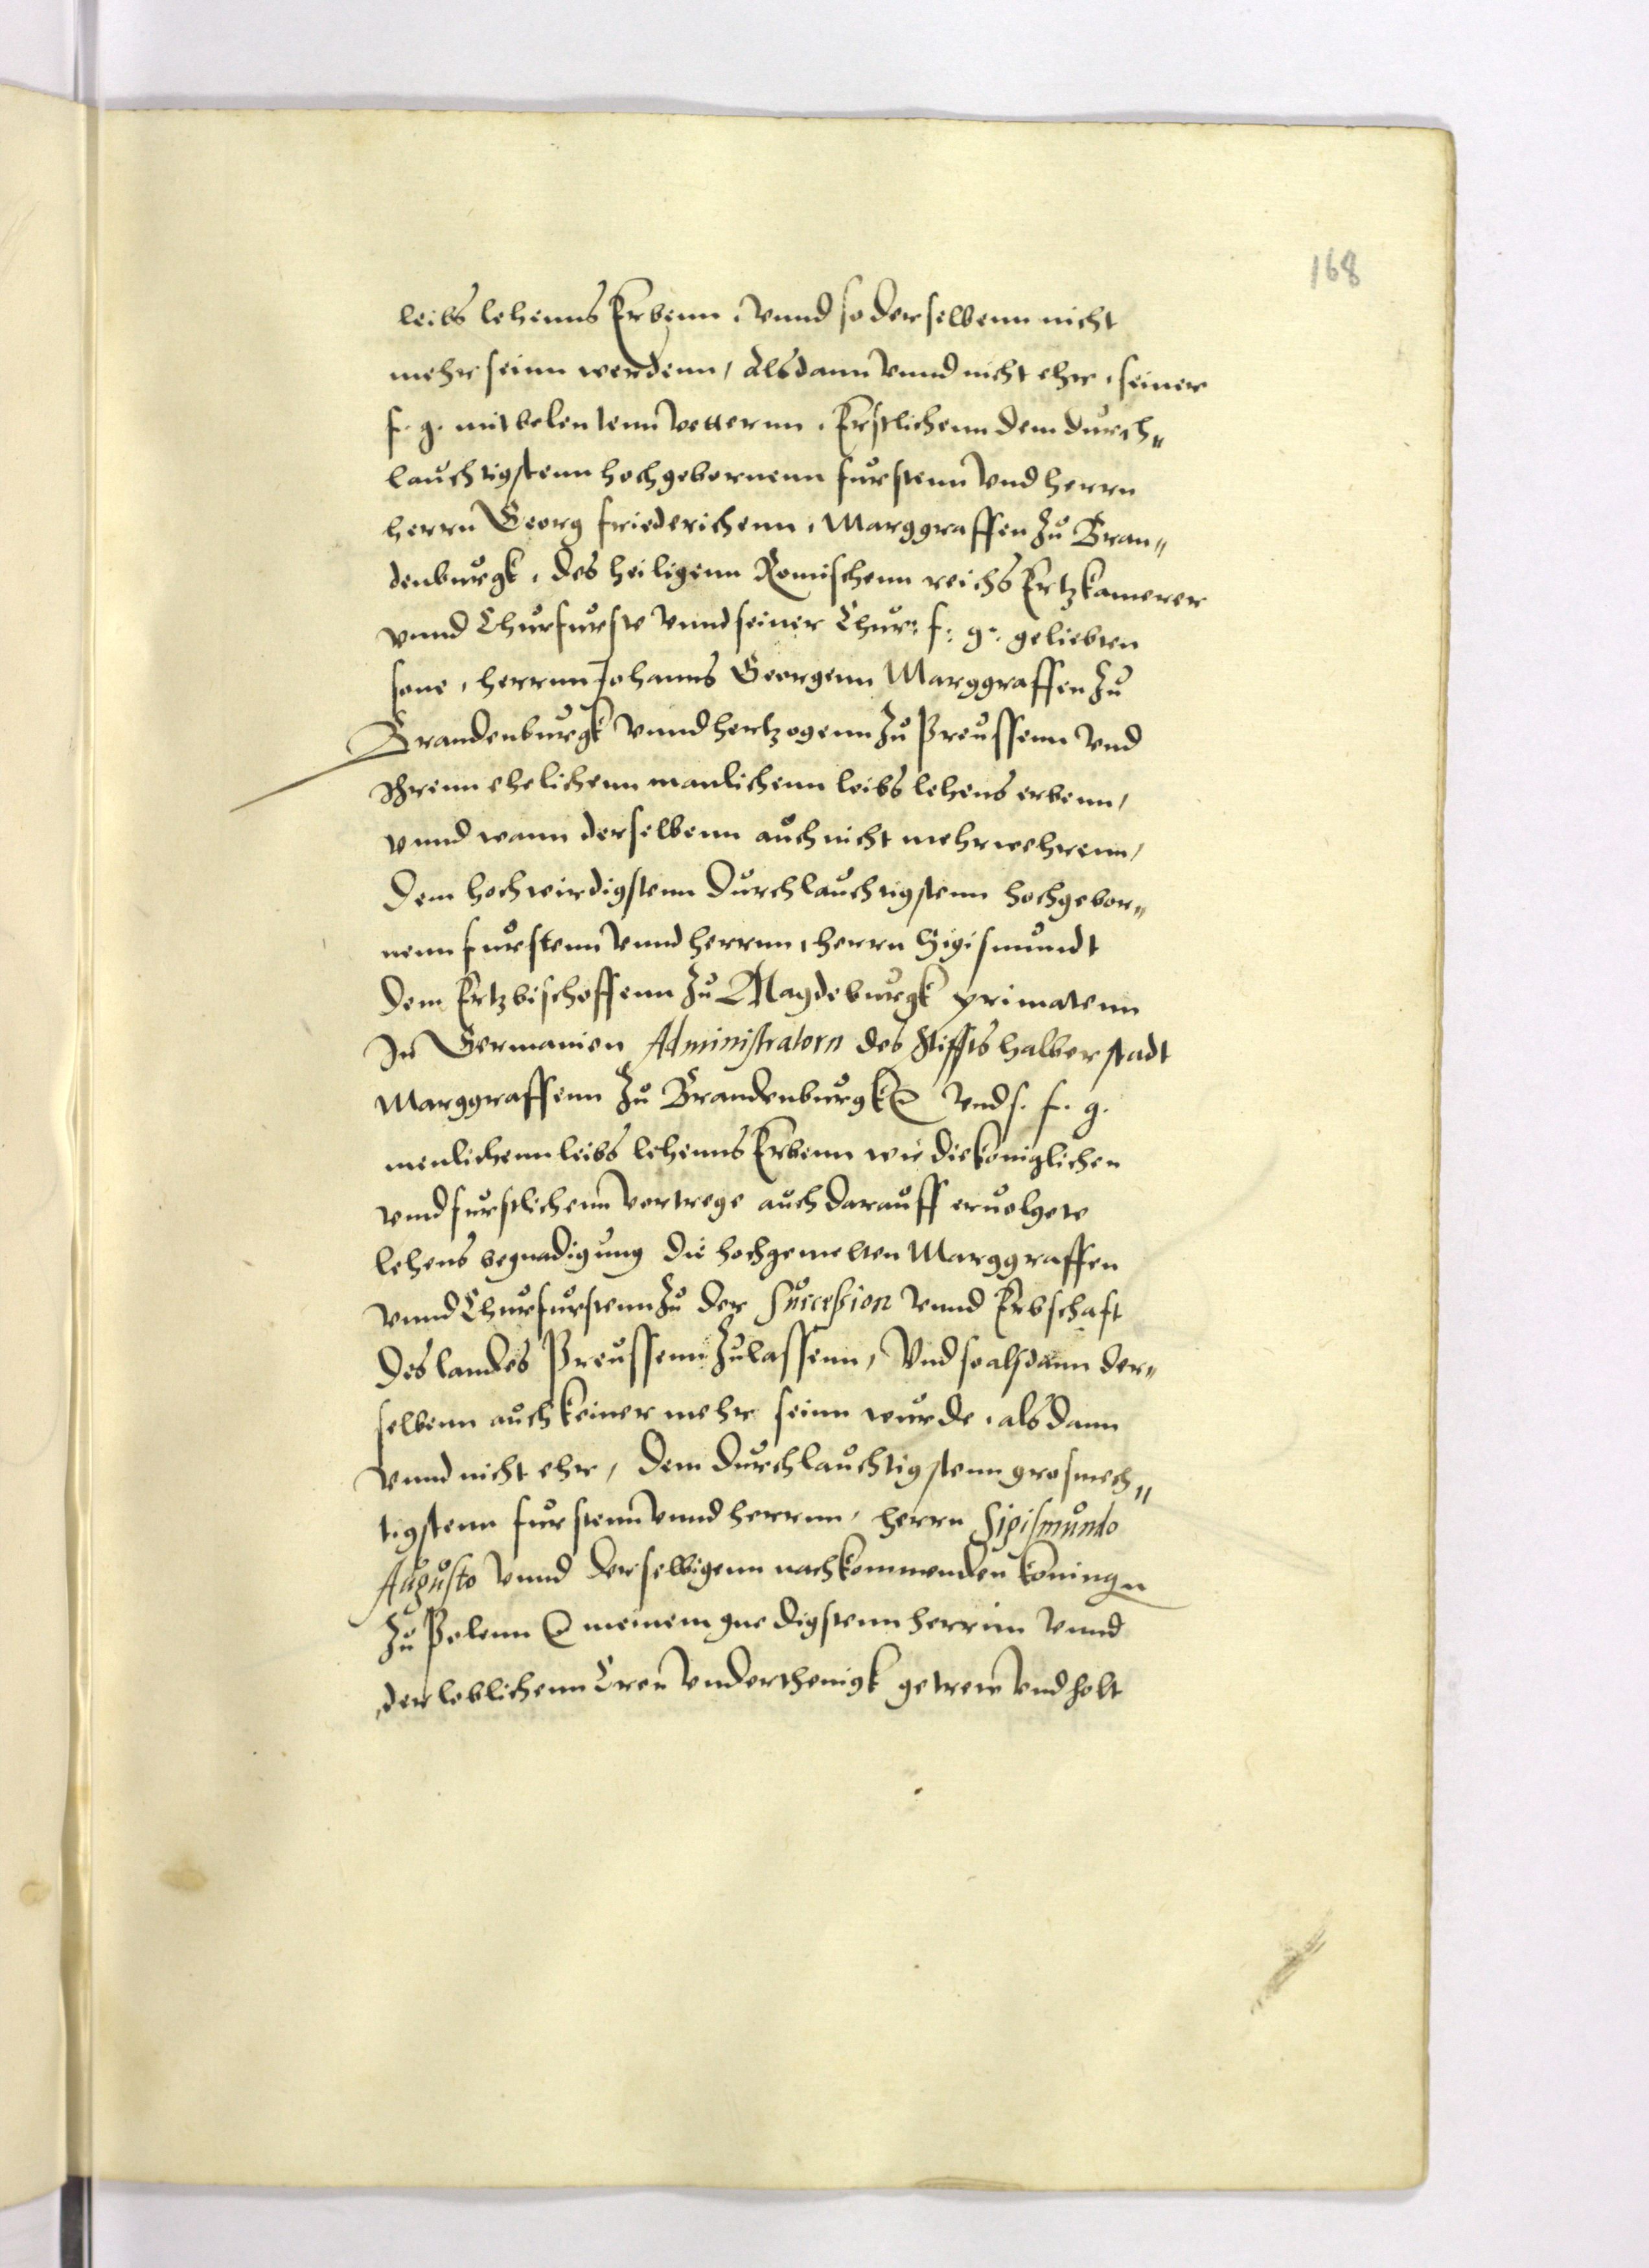 168
leibs lehenns Erbenn, vnnd so derselbenn nicht
mehr seinn werdenn, Alsdann vnnd nicht ehr, seiner
f. g. mitbelentenn Vetternn, Erstlichenn dem durch„
lauchtigstenn hochgebornenn furstenn vnd herrn
herrn Georg Friederichenn, Marggraffen zu Bran„
denburgk, des heiligenn Romischenn reichs Ertzkamerer
vnnd Churfurste vnnd seiner Chur: f: g: geliebten
sone, herrnn Johanns Georgenn Marggraffen zu
Brandenburgk vnnd hertzogenn zu Preussenn vnd
Ihrenn ehelichenn manlichenn leibs lehens erbenn,
vnnd wann derselbenn auch nicht mehr wehrenn,
dem hochwirdigstenn durchlauchtigstenn hochgebor„
nenn furstenn vnnd herrnn, herrn Sigismundt
dem Ertzbischoffenn zu Magdeburgk primatenn
In Germanien Administratorn des Stiffts halberstadt
Marggraffenn zu Brandenburgk vnd s. f. g.
menlichenn leibs lehenns Erbenn wie die koniglichen
vnnd furstlichenn Vertrege auch darauff eruolgete
lehens begnadigung die hochgemelten Marggraffen
vnnd Churfurstenn zu der Succession vnnd Erbschaft
des landes Preussenn zulassenn, Vnd so alsdann der„
selbenn auch keiner mehr seinn wurde, als dann
vnnd nicht ehr, dem durchlauchtigstenn grosmech„
tigstenn furstenn vnnd herrnn, herrn Sigismundo
Augusto vnnd derselbigenn nachkommenden koningen
zu Polenn meinem gnedigstenn herrnn vnnd
der loblichenn Cron vnderthenigk getrew vnd holt